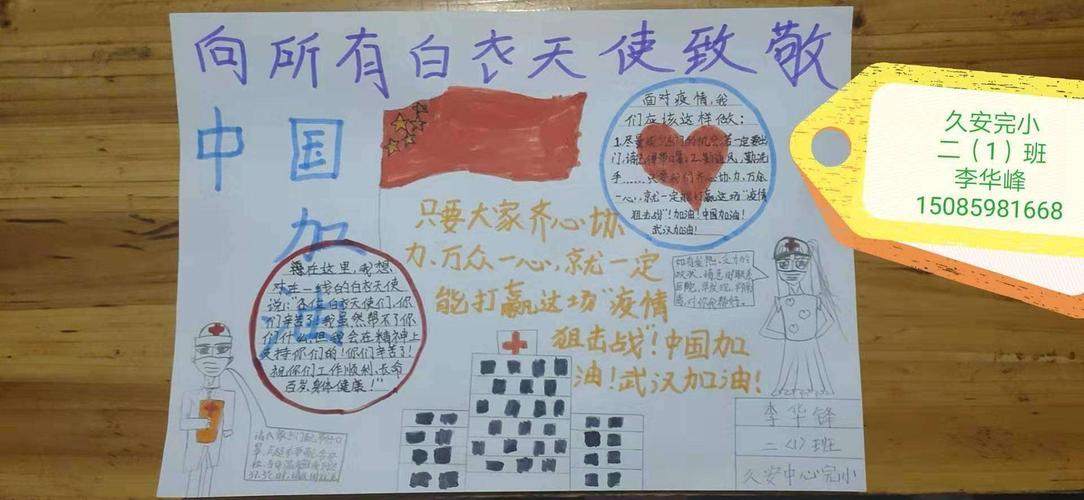 向所有白衣天使致敬
中国
加
油
面对疫情,我
们应该这样做:
1.尽量减少出门的机会,若一定要出
门,请记得带口罩;2.勤通风,勤洗
手……只要我们齐心协力,万众
一心,就一定能打赢这场“疫情
狙击战”!加油!中国加油!
武汉加油!
只要大家齐心协
力、万众一心,就一定
能打赢这场“疫情
狙击战”!中国加
油!武汉加油!
在这里,我想
对在一线的白衣天使
说:“各位白衣天使们,你
们辛苦了!我虽然帮不了你
们什么,但我会在精神上
支持你们的!你们辛苦了!
祝你们工作顺利、长命
百岁、身体健康!”
李华锋
二(1)班
久安中心完小
久安完小
二（1）班
李华峰
15085981668